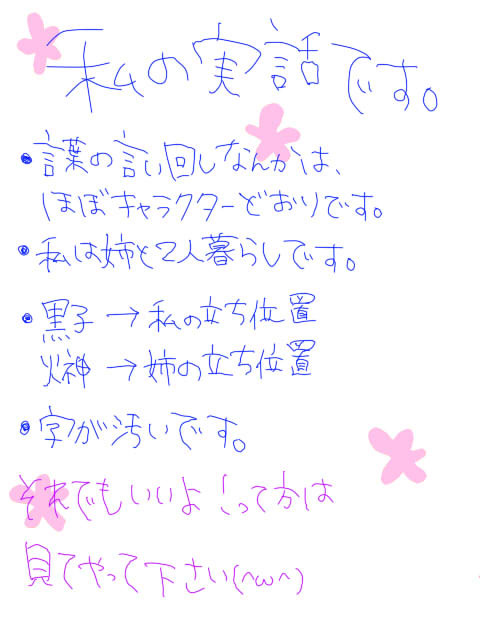 私の実話です。
•言葉の言い回しなんかは、
ほぼキャラクターどおりです。
•私は姉と2人暮らしです。
•黒子→私の立ち位置
火神→姉の立ち位置
•字が汚いです。
それでもいいよ!って方は
見てやって下さい(^ω^)